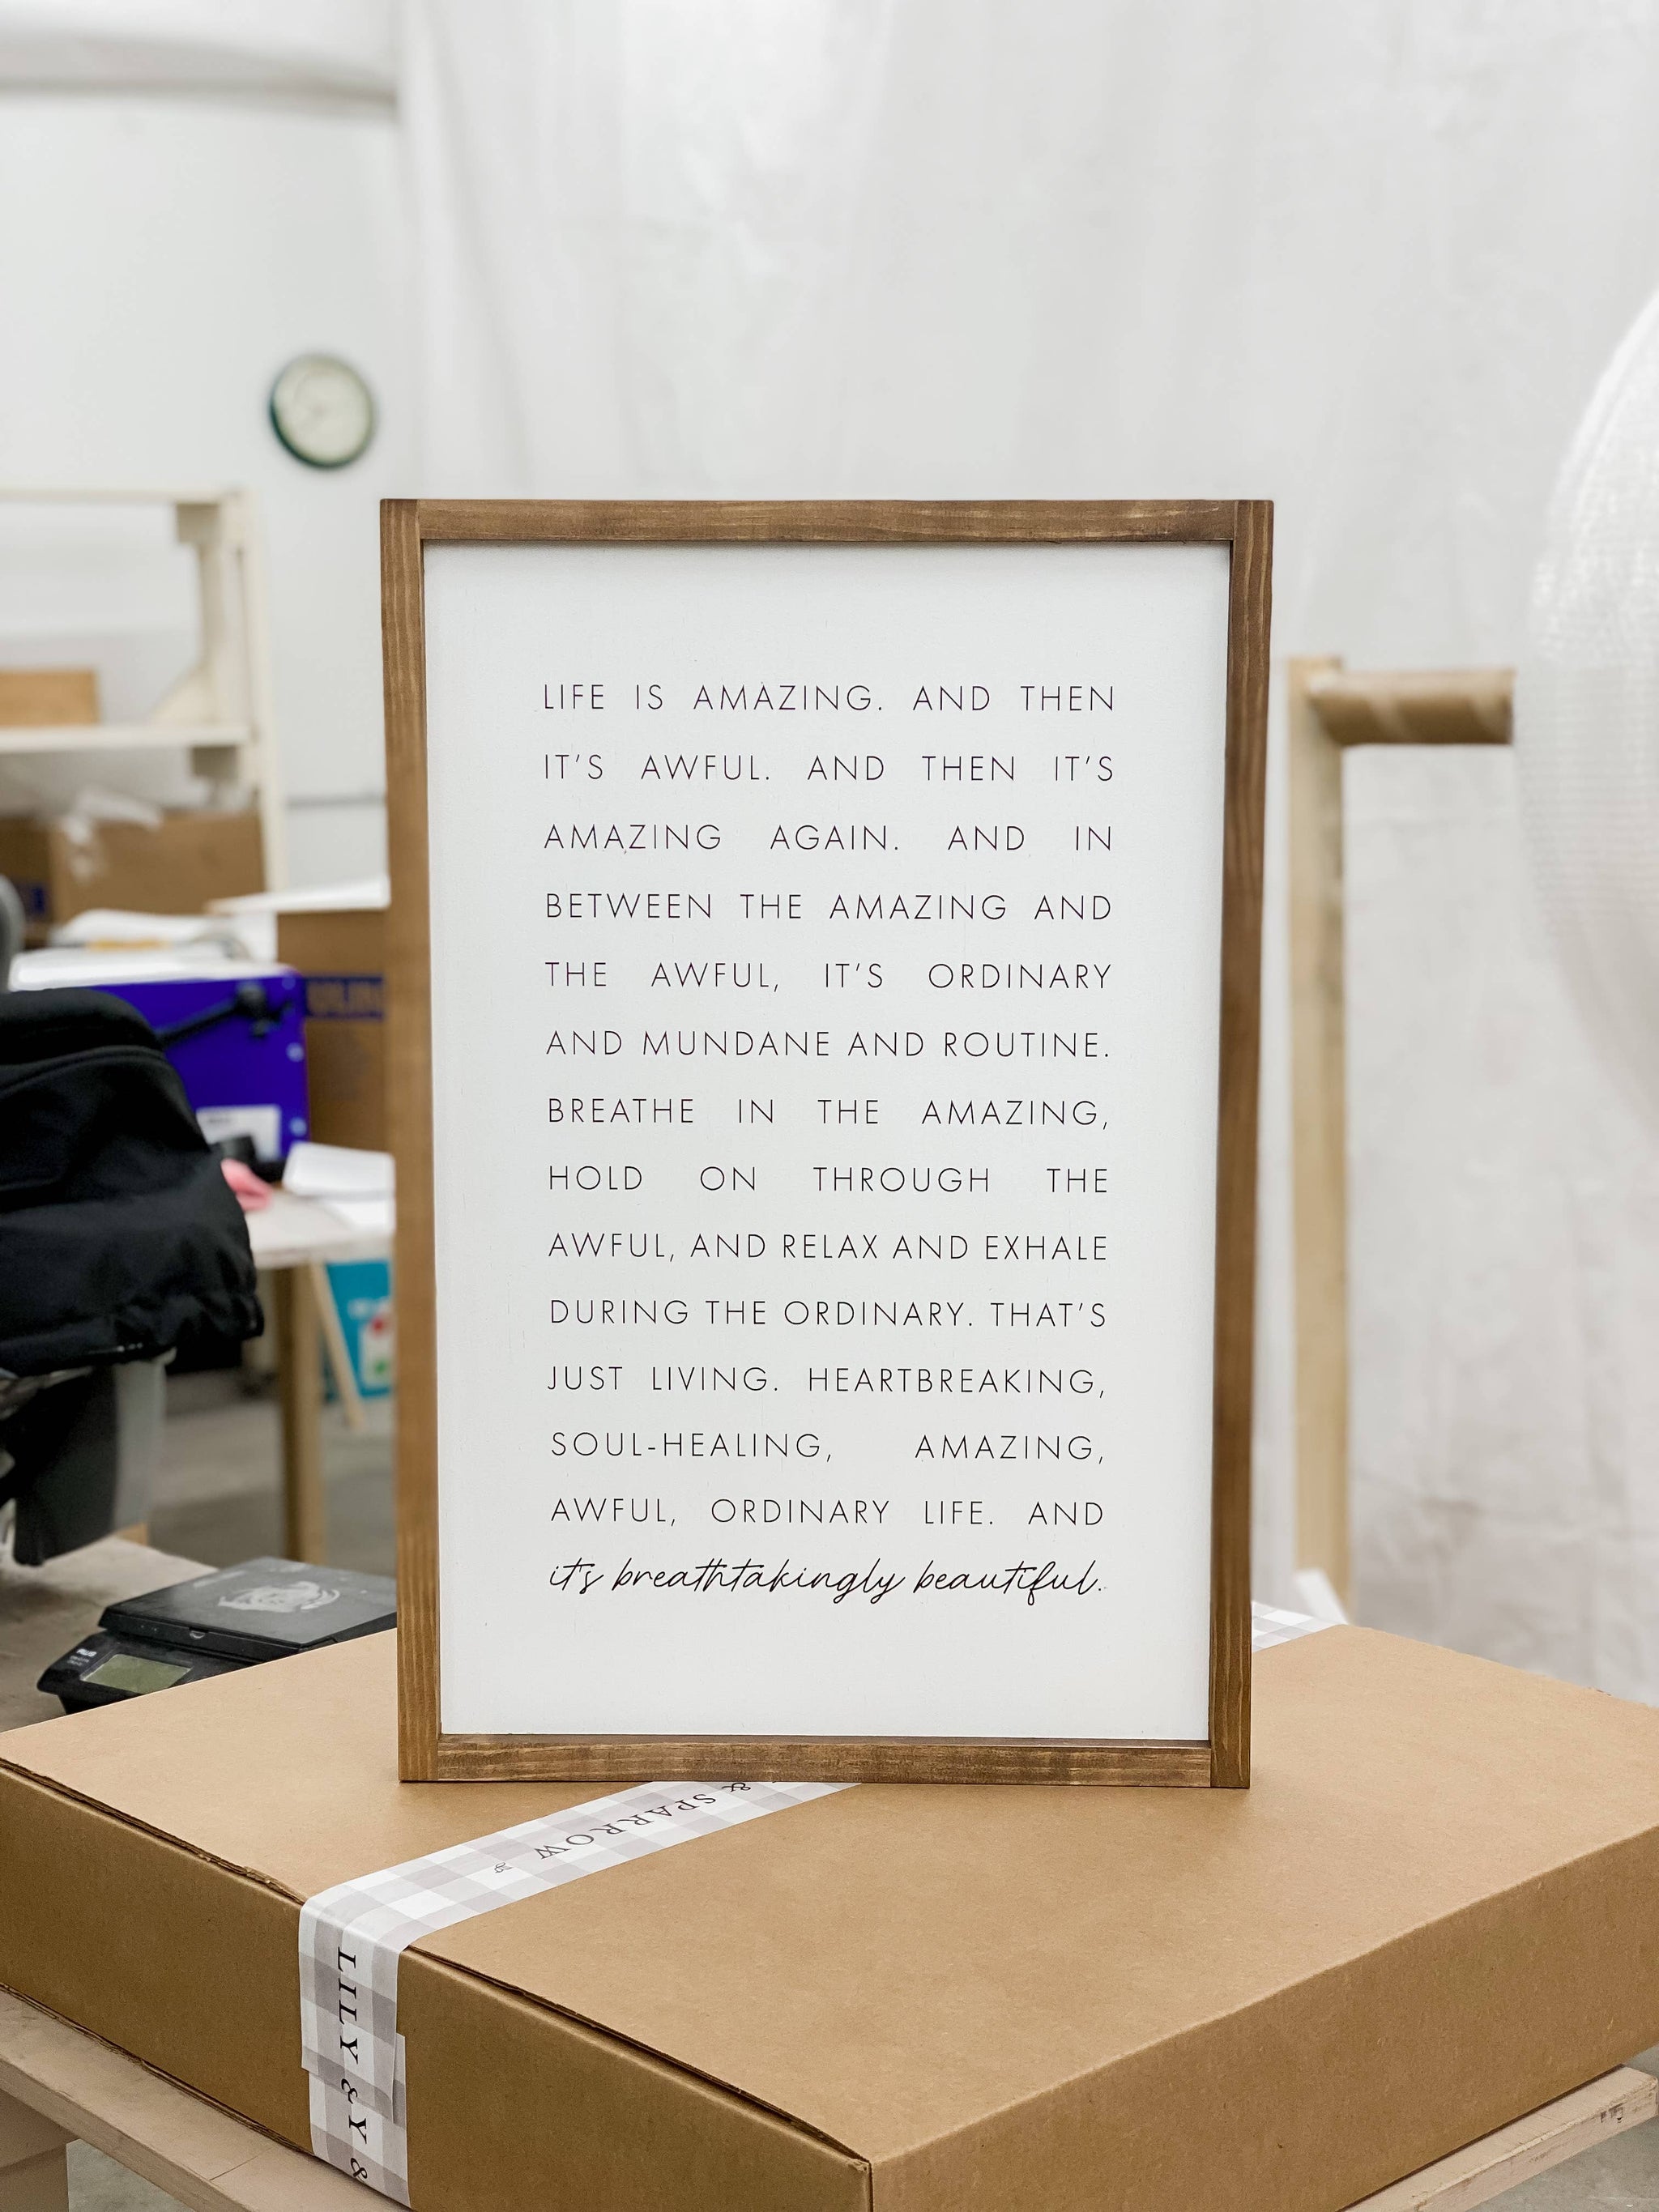 LIFE IS AMAZING. AND THEN
IT'S AWFUL. AND THEN IT'S
AMAZING AGAIN. AND IN
BETWEEN THE AMAZING AND
THE AWFUL, IT'S ORDINARY
AND MUNDANE AND ROUTINE.
BREATHE IN THE AMAZING,
HOLD ON THROUGH THE
AWFUL, AND RELAX AND EXHALE
DURING THE ORDINARY. THAT'S
JUST LIVING. HEARTBREAKING,
SOUL-HEALING, AMAZING,
AWFUL, ORDINARY LIFE. AND
it's breathtakingly beautiful.
& SPARROW
LILY &
Y &